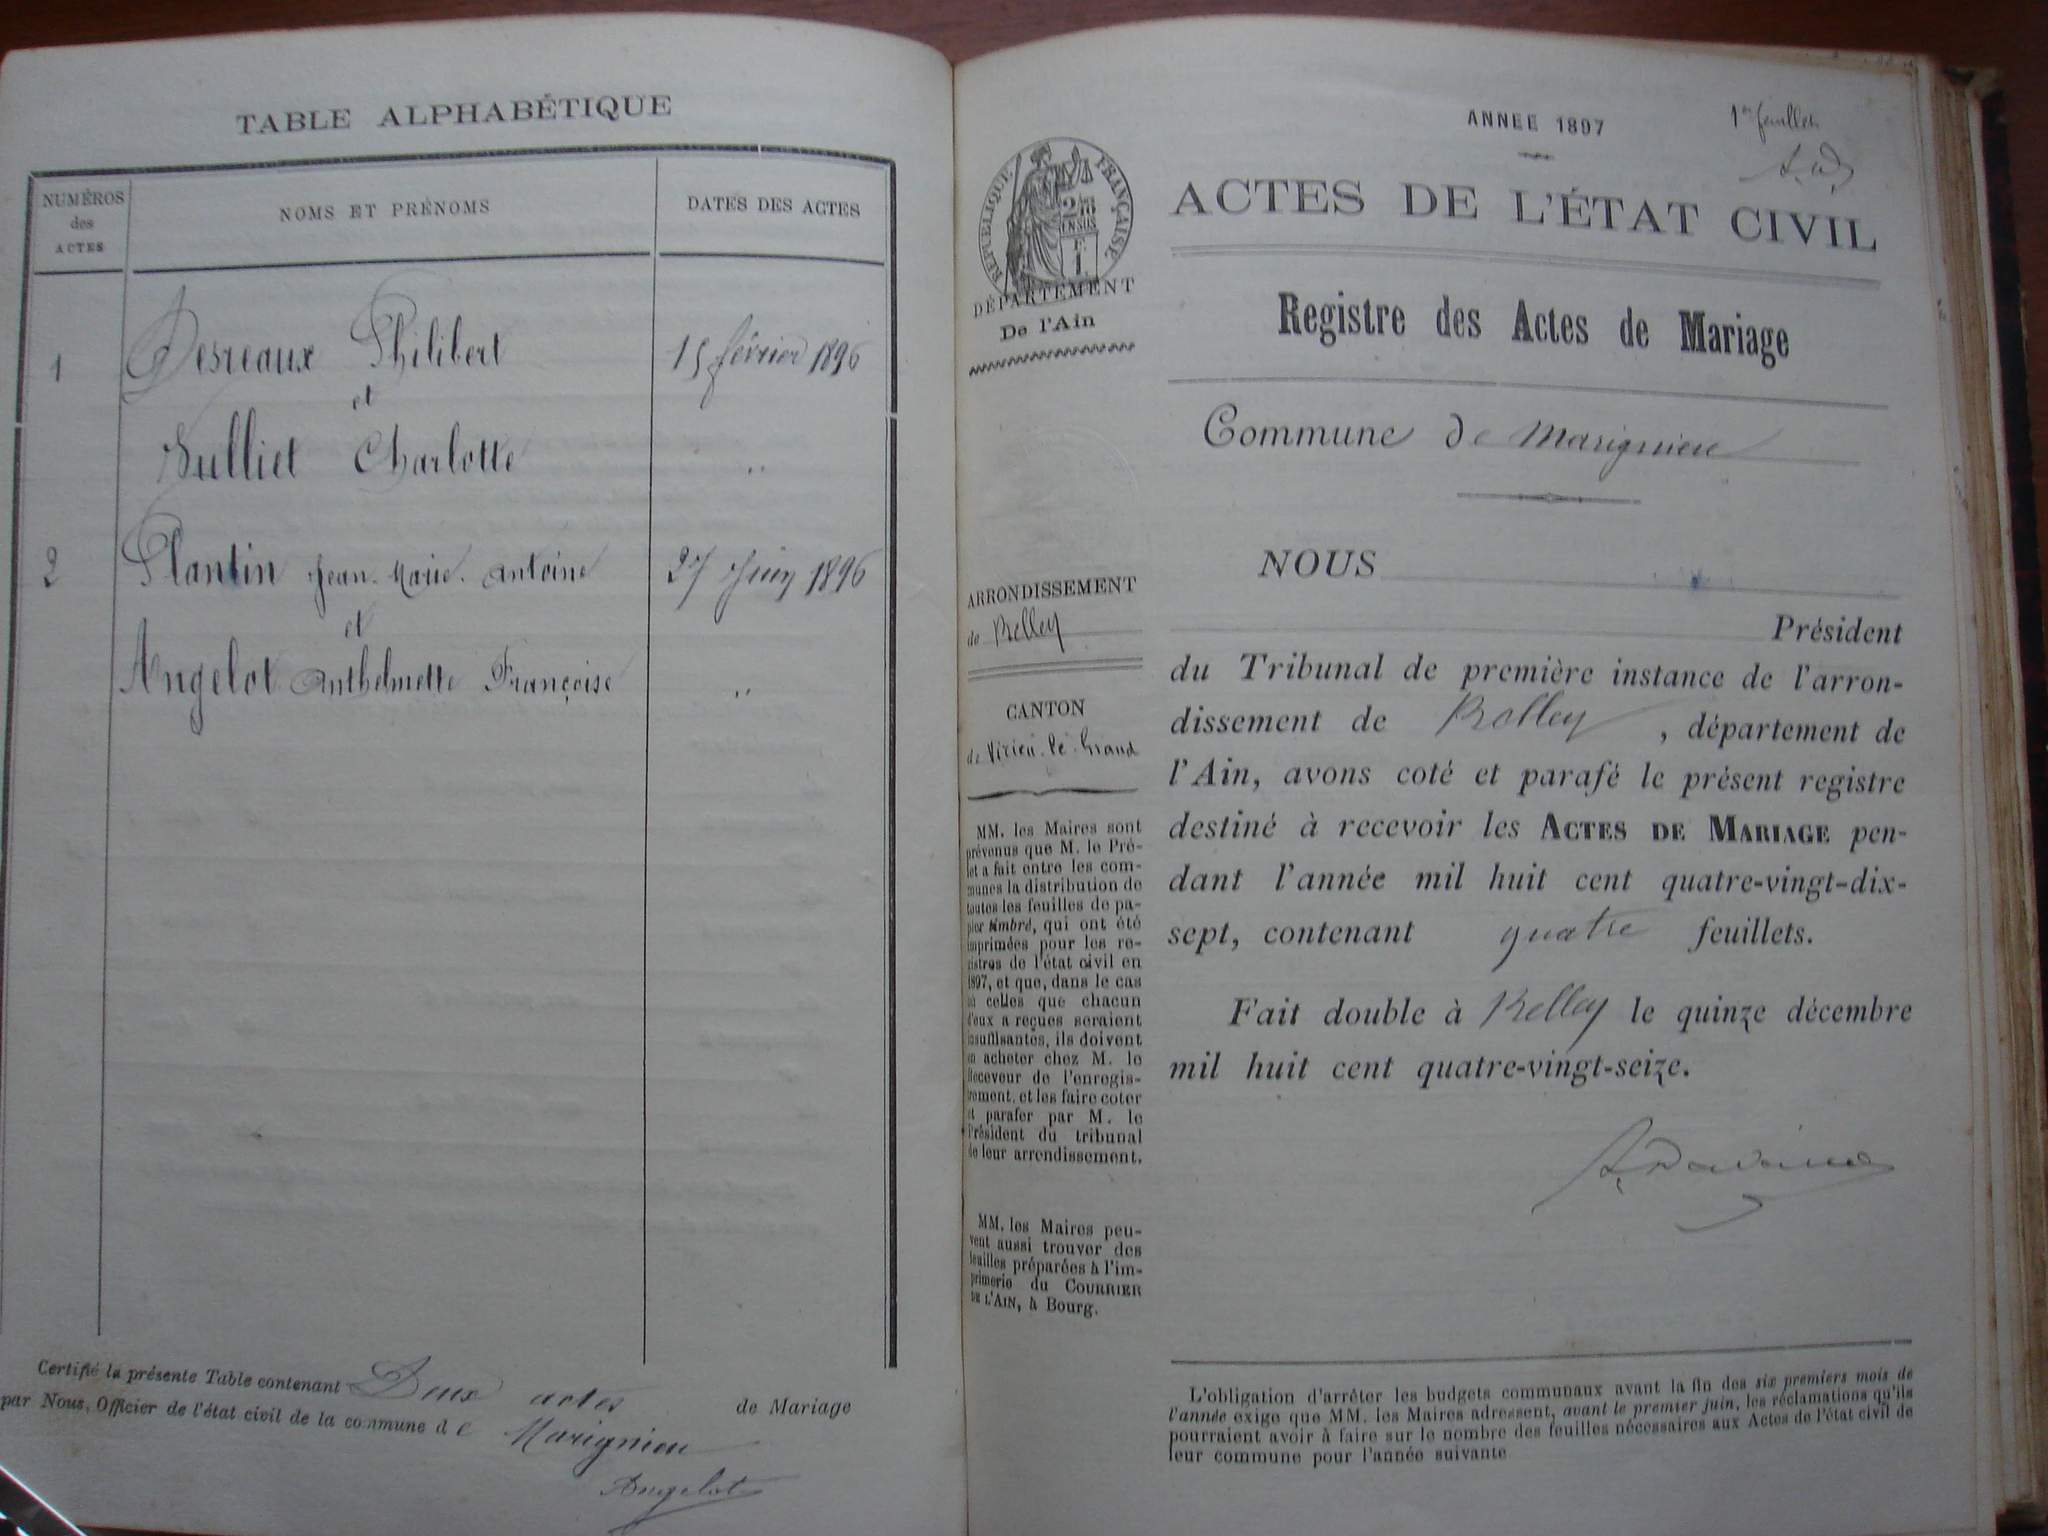 TABLE ALPHABÉTIQUE
NUMÉROS des ACTES
NOMS ET PRÉNOMS
DATES DES ACTES
1 Desreaux Philibert 15 février 1896
et
Sulliet Charlotte "
2 Plantin Jean-Marie-Antoine 27 Juin 1896
et
Angelot Anthelmette Françoise "
Certifié la présente Table contenant Deux actes de Mariage
par Nous, Officier de l'état civil de la commune de Marignieu
Angelot
ANNEE 1897
1er feuillet
A. D.
RÉPUBLIQUE FRANÇAISE
2/10 EN SUS
F. 1
DÉPARTEMENT
De l'Ain
ARRONDISSEMENT
de Belley
CANTON
de Virieu-le-Grand
MM. les Maires sont
prévenus que M. le Pré-
fet a fait entre les com-
munes la distribution de
toutes les feuilles de pa-
pier timbré, qui ont été
imprimées pour les re-
gistres de l'état civil en
1897, et que, dans le cas
où celles que chacun
d'eux a reçues seraient
insuffisantes, ils doivent
en acheter chez M. le
Receveur de l'enregis-
trement, et les faire coter
et parafer par M. le
Président du tribunal
de leur arrondissement.
MM. les Maires peu-
vent aussi trouver des
feuilles préparées à l'im-
primerie du COURRIER
DE L'AIN, à Bourg.
ACTES DE L'ÉTAT CIVIL
Registre des Actes de Mariage
Commune de Marignieu
NOUS
Président
du Tribunal de première instance de l'arron-
dissement de Belley, département de
l'Ain, avons coté et parafé le présent registre
destiné à recevoir les ACTES DE MARIAGE pen-
dant l'année mil huit cent quatre-vingt-dix-
sept, contenant quatre feuillets.
Fait double à Belley le quinze décembre
mil huit cent quatre-vingt-seize.
L'obligation d'arrêter les budgets communaux avant la fin des six premiers mois de
l'année exige que MM. les Maires adressent, avant le premier juin, les réclamations qu'ils
pourraient avoir à faire sur le nombre des feuilles nécessaires aux Actes de l'état civil de
leur commune pour l'année suivante